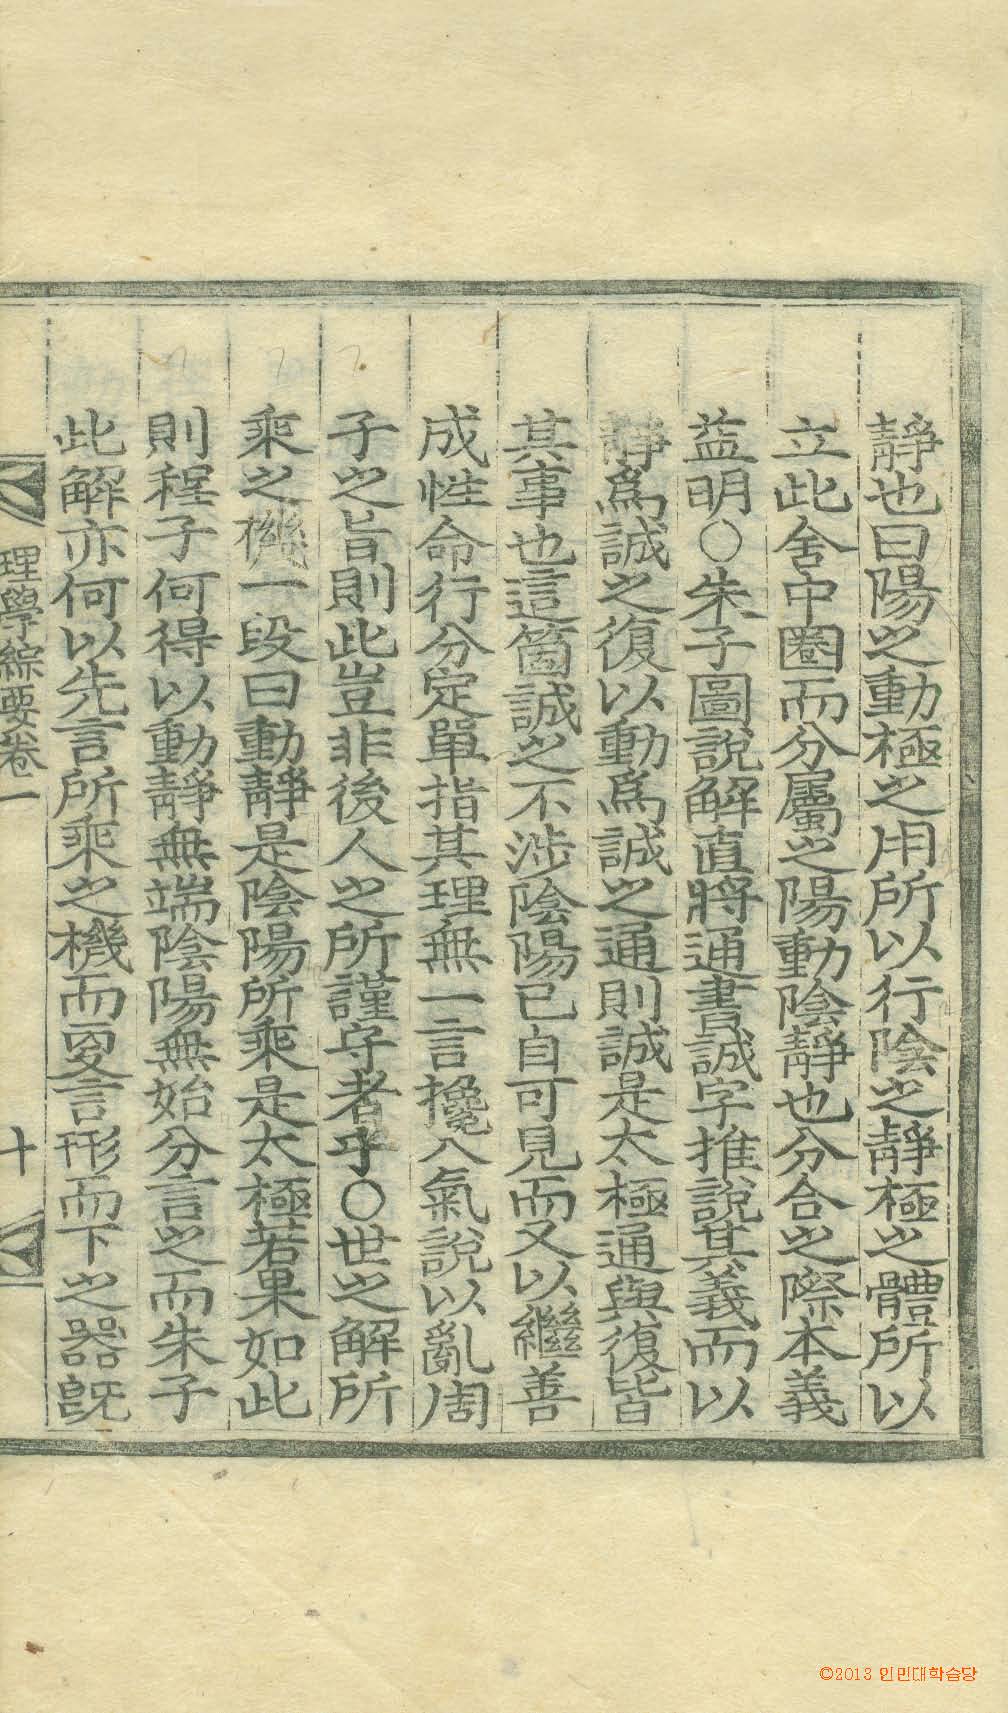 靜也曰陽之動極之用所以行陰之靜極之體所以
立此舍中圈而分屬之陽動陰靜也分合之際本義
益明○朱子圖說解直將通書誠字推說其義而以
靜爲誠之復以動爲誠之通則誠是太極通與復皆
其事也這箇誠之不涉陰陽已自可見而又以繼善
成性命行分定單指其理無一言攙入氣說以亂周
子之旨則此豈非後人之所謹守者乎○世之解所
乘之機一段曰動靜是陰陽所乘是太極若果如此
則程子何得以動靜無端陰陽無始分言之而朱子
此解亦何以先言所乘之機而更言形而下之器旣
理學綜要卷一
十
©2013 인민대학습당